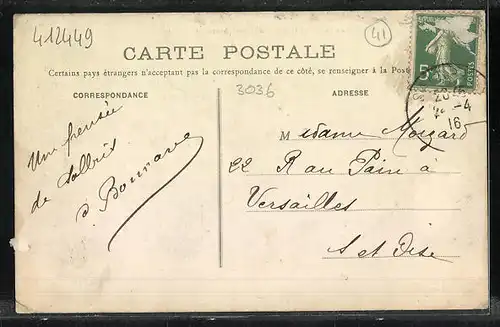 412449
41
CARTE POSTALE
Certains pays étrangers n'acceptant pas la correspondance de ce côté, se renseigner à la Poste
CORRESPONDANCE
3036
ADRESSE
5
POSTES
20
-4
16
Une pensée
de Salbris
Madame
22 R au Pain à
Versailles
S et Oise